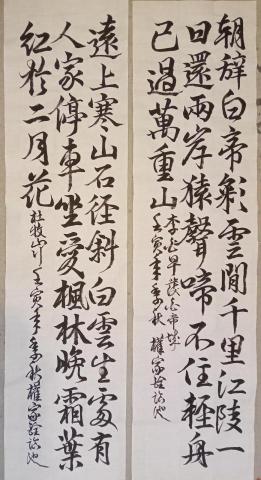 朝辭白帝彩雲間千里江陵一
日還兩岸猿聲啼不住輕舟
已過萬重山
李白早發白帝城
壬寅年季秋 權家詮臨池
遠上寒山石径斜白雲生處有
人家停車坐愛楓林晚霜葉
紅於二月花 杜牧山行壬寅年季秋權家詮臨池